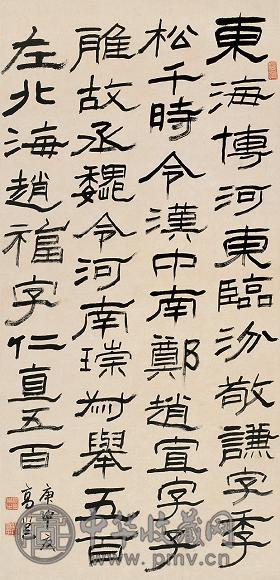 東海傅河東臨汾敬謙字季
松千時令漢中南鄭趙宣字子
雅故丞魏令河南琮叔舉五百
左北海趙福字仁直五百
庚
高邕
中华收藏网
www.pmv.cn